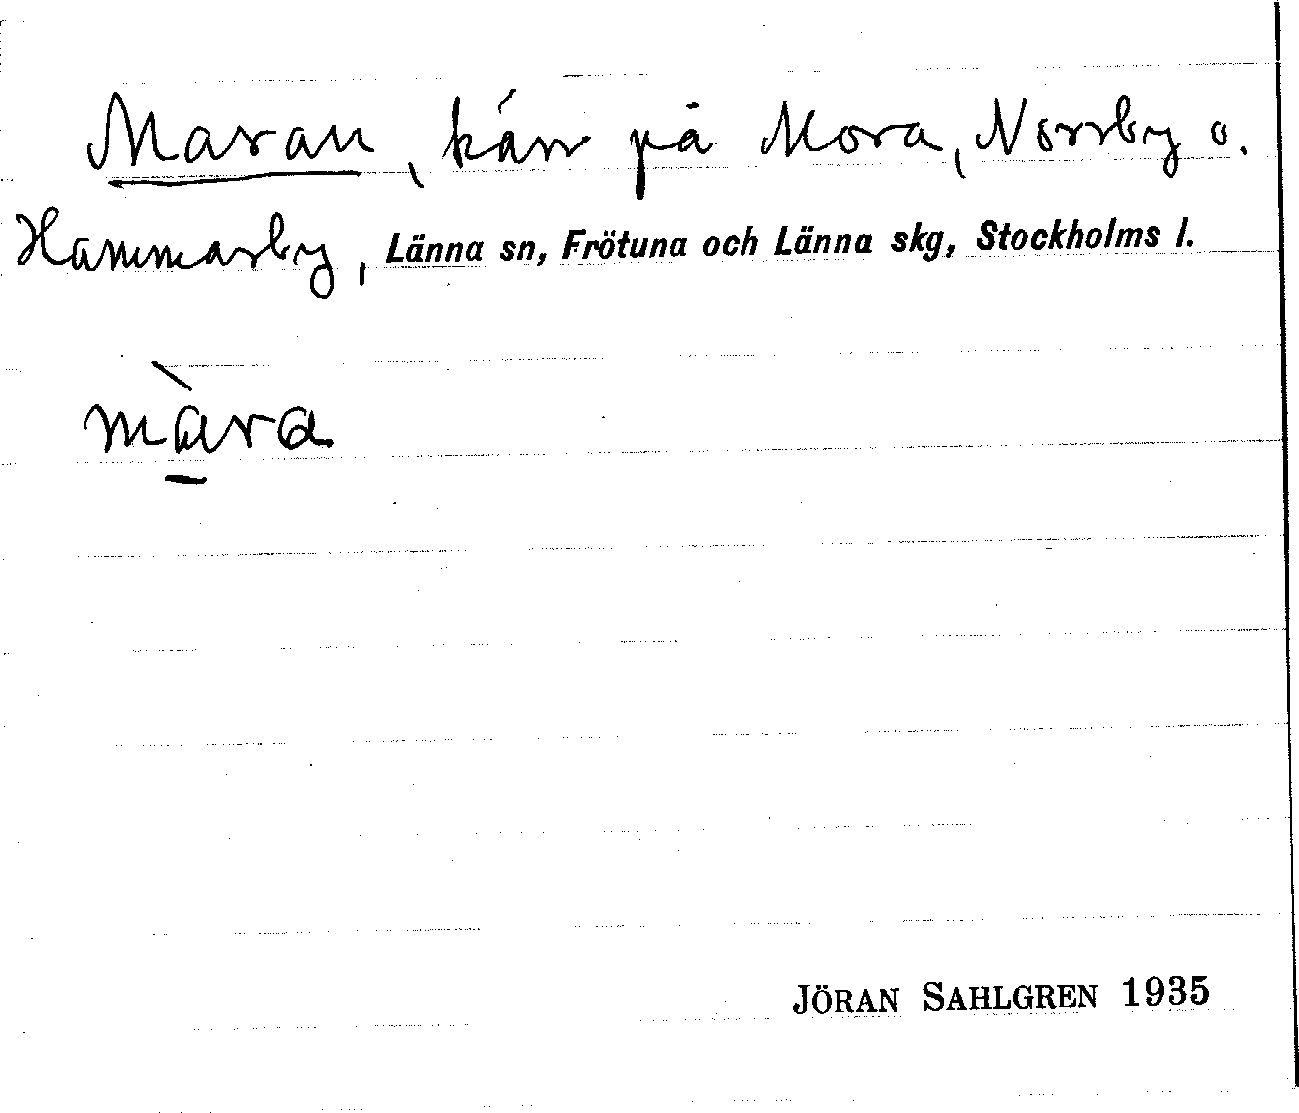 Maran, kärr på Mora, Norrby o.
Hammarby, Länna sn, Frötuna och Länna skg, Stockholms l.
màra
JÖRAN SAHLGREN 1935